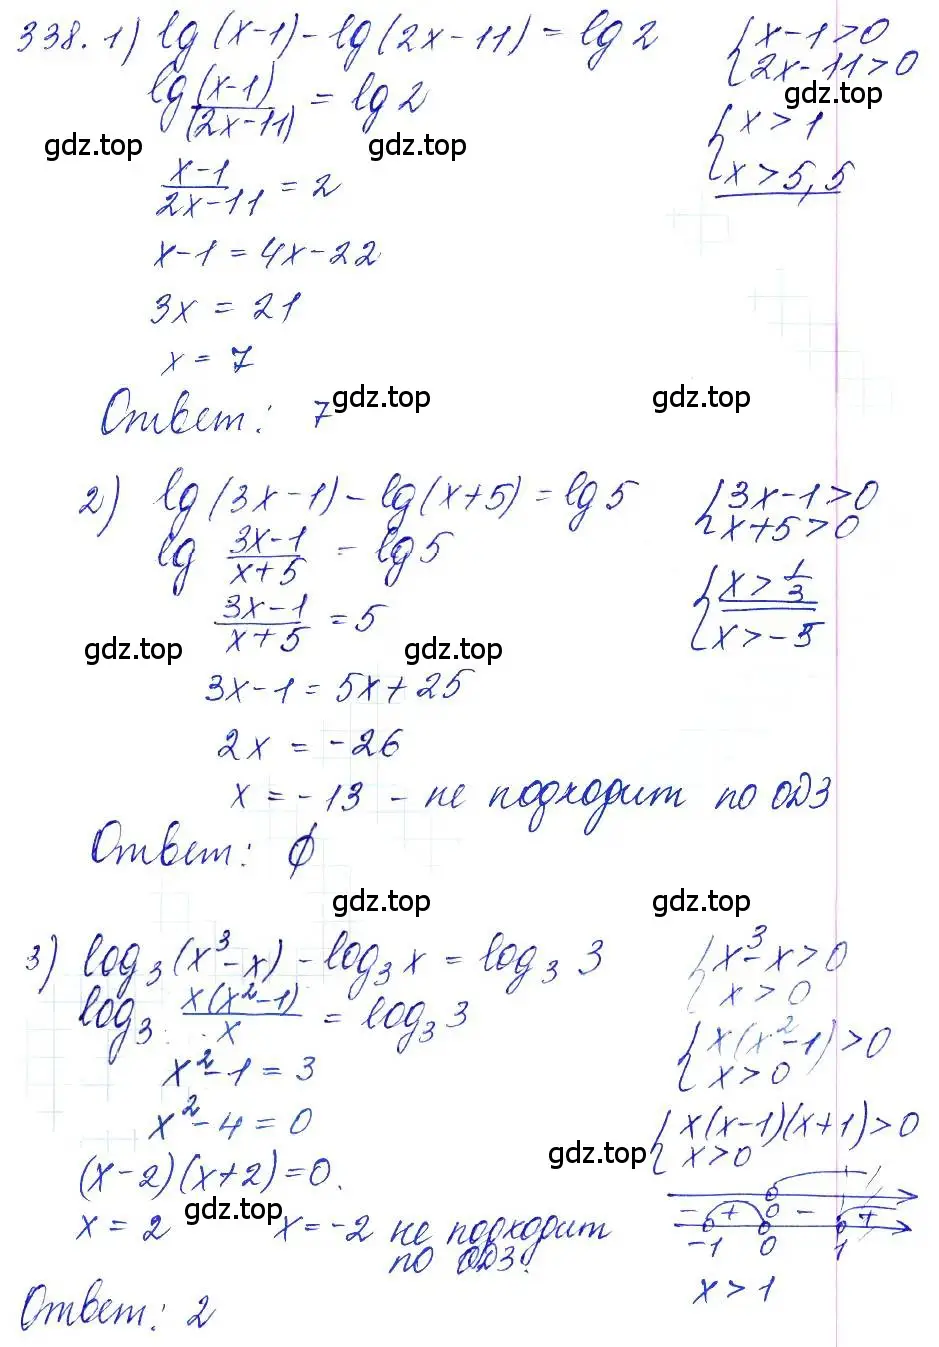 338. 1) lg(x-1) - lg(2x-11) = lg 2
{x-1>0
{2x-11>0
gdz.top
lg (x-1)/(2x-11) = lg 2
gdz.top gdz.top
{x>1
{x>5,5
x-1/2x-11 = 2
x-1 = 4x-22
3x = 21
x = 7
Ответ: 7
gdz.top gdz.top
2) lg(3x-1) - lg(x+5) = lg 5
{3x-1>0
{x+5>0
lg 3x-1/x+5 = lg 5
{x>1/3
{x>-5
3x-1/x+5 = 5
gdz.top gdz.top
3x-1 = 5x+25
2x = -26
x = -13 - не подходит по ОДЗ
Ответ: ∅
gdz.top gdz.top
3) log₃(x³-x) - log₃x = log₃3
{x³-x>0
{x>0
log₃ x(x²-1)/x = log₃3
{x(x²-1)>0
{x>0
x²-1 = 3
x²-4 = 0
{x(x-1)(x+1)>0
{x>0
gdz.top
(x-2)(x+2)=0.
gdz.top
x = 2 x = -2 не подходит
по ОДЗ.
0
- + - +
-1 0 1
x>1
Ответ: 2